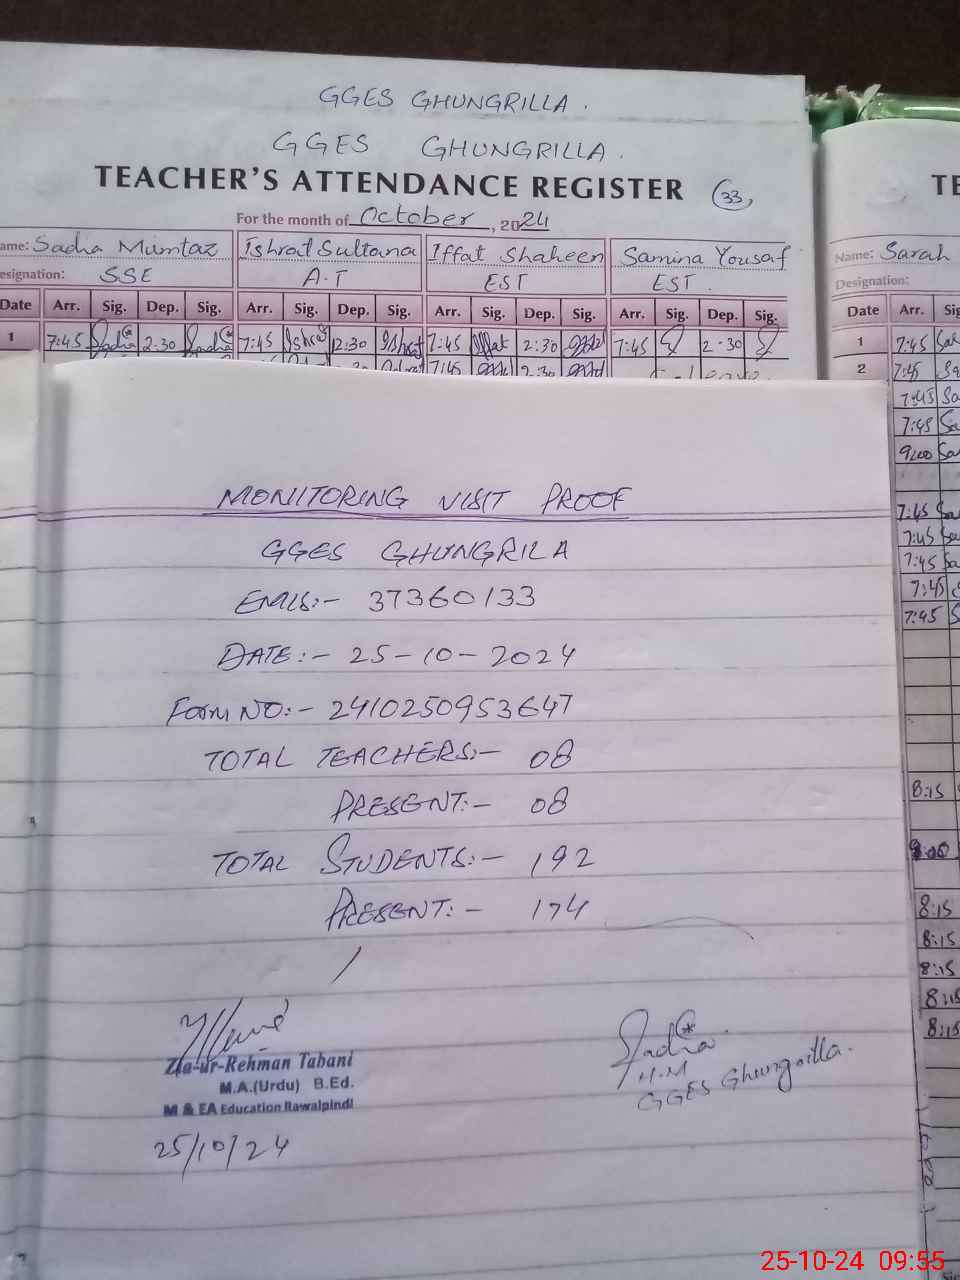 GGES GHUNGRILLA.
GGES GHUNGRILLA.
TEACHER'S ATTENDANCE REGISTER 33
For the month of October, 2024
ame: Sadha Mumtaz Ishrat Sultana Iffat Shaheen Samina Yousaf
esignation: SSE A.T EST EST.
Date Arr. Sig. Dep. Sig. Arr. Sig. Dep. Sig. Arr. Sig. Dep. Sig. Arr. Sig. Dep. Sig.
1 7:45 Sadha 2:30 Sadha 7:45 Ishrat 12:30 Ishrat 7:45 Iffat 2:30 7:45 2:30
7:45 2:30
TE
Name: Sarah
Designation:
Date Arr. Sig
1 7:45 Sar
2 7:45 Sa
7:45 Sa
7:45 Sa
9:00 Sar
7:45 Sar
7:45 Sa
7:45 Sa
7:45 S
7:45 S
8:15
9:00
8:15
8:15
8:15
8:15
8:15
MONITORING VISIT PROOF
GGES GHUNGRILA
EMIS:- 37360133
DATE:- 25-10-2024
Form NO:- 2410250953647
TOTAL TEACHERS:- 08
PRESENT:- 08
TOTAL STUDENTS:- 192
PRESENT:- 174
Zia-ur-Rehman Tabani
M.A.(Urdu) B.Ed.
M & EA Education Rawalpindi
25/10/24
Sadha
H.M
GGES Ghungrilla.
25-10-24 09:55